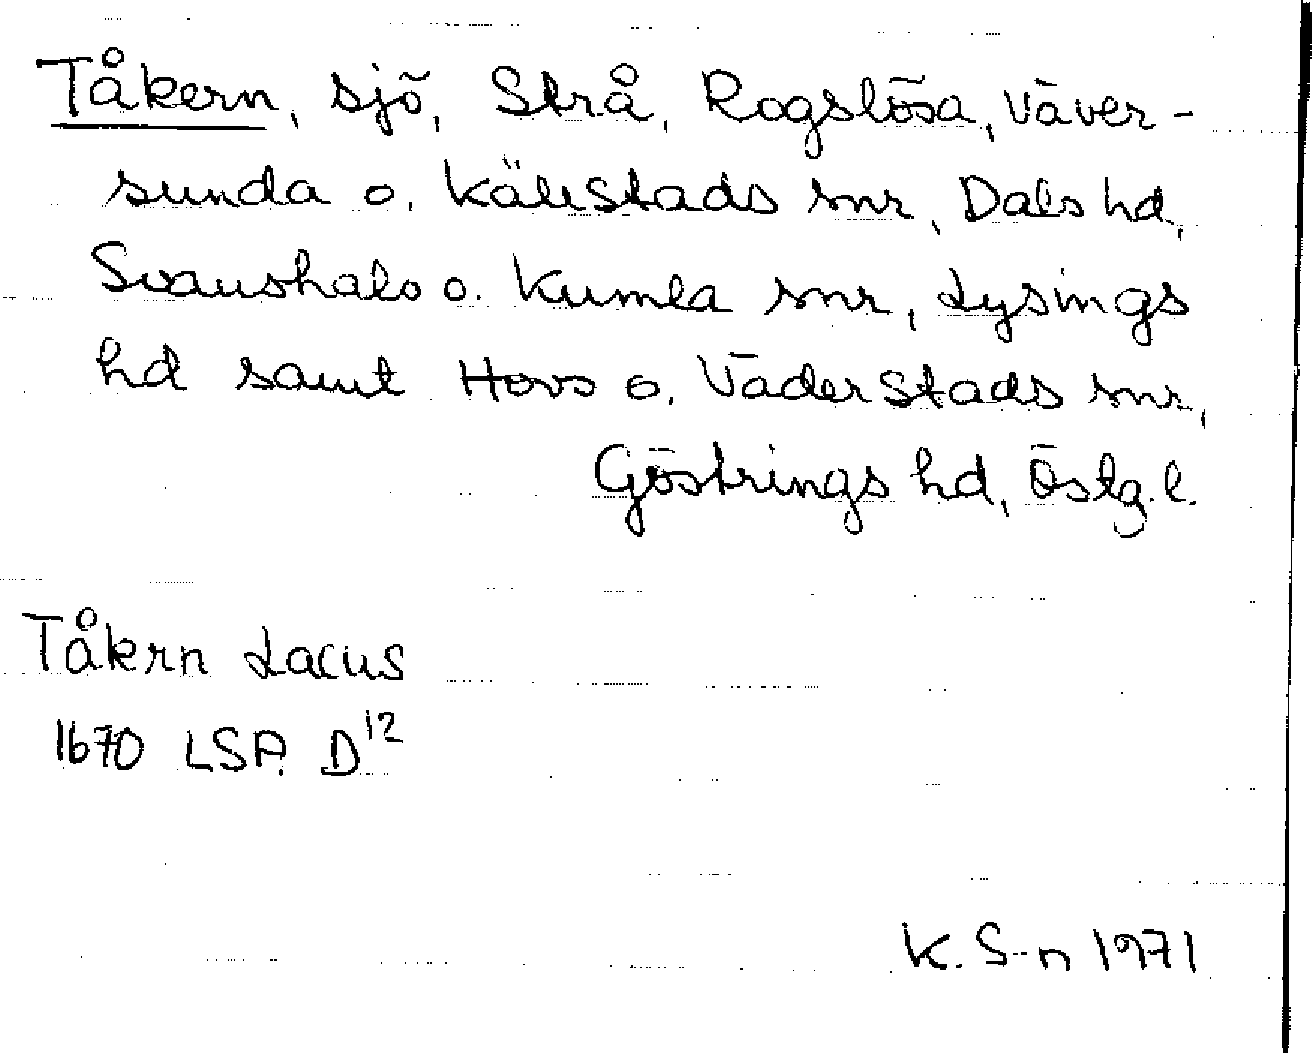 Tåkern, sjö, Strå, Rogslösa, Väver-
sunda o. Källstads snr, Dals hd,
Svanshals o. Kumla snr, Lysings
hd samt Hovs o. Väderstads snr,
Göstrings hd, Östg.l.
Tåkern Lacus
1670 LSA. D12
K. S-n 1971